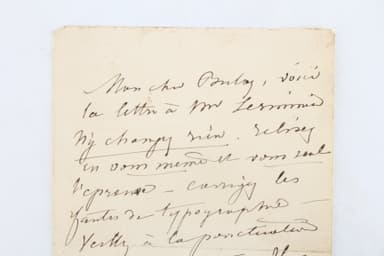 Mon cher Buloz, voici
la lettre à Mr Lerminier
N'y changez rien. Relisez
en vous même et vous seul
l'epreuve - corrigez les
fautes de typographe -
Veillez à la ponctuation